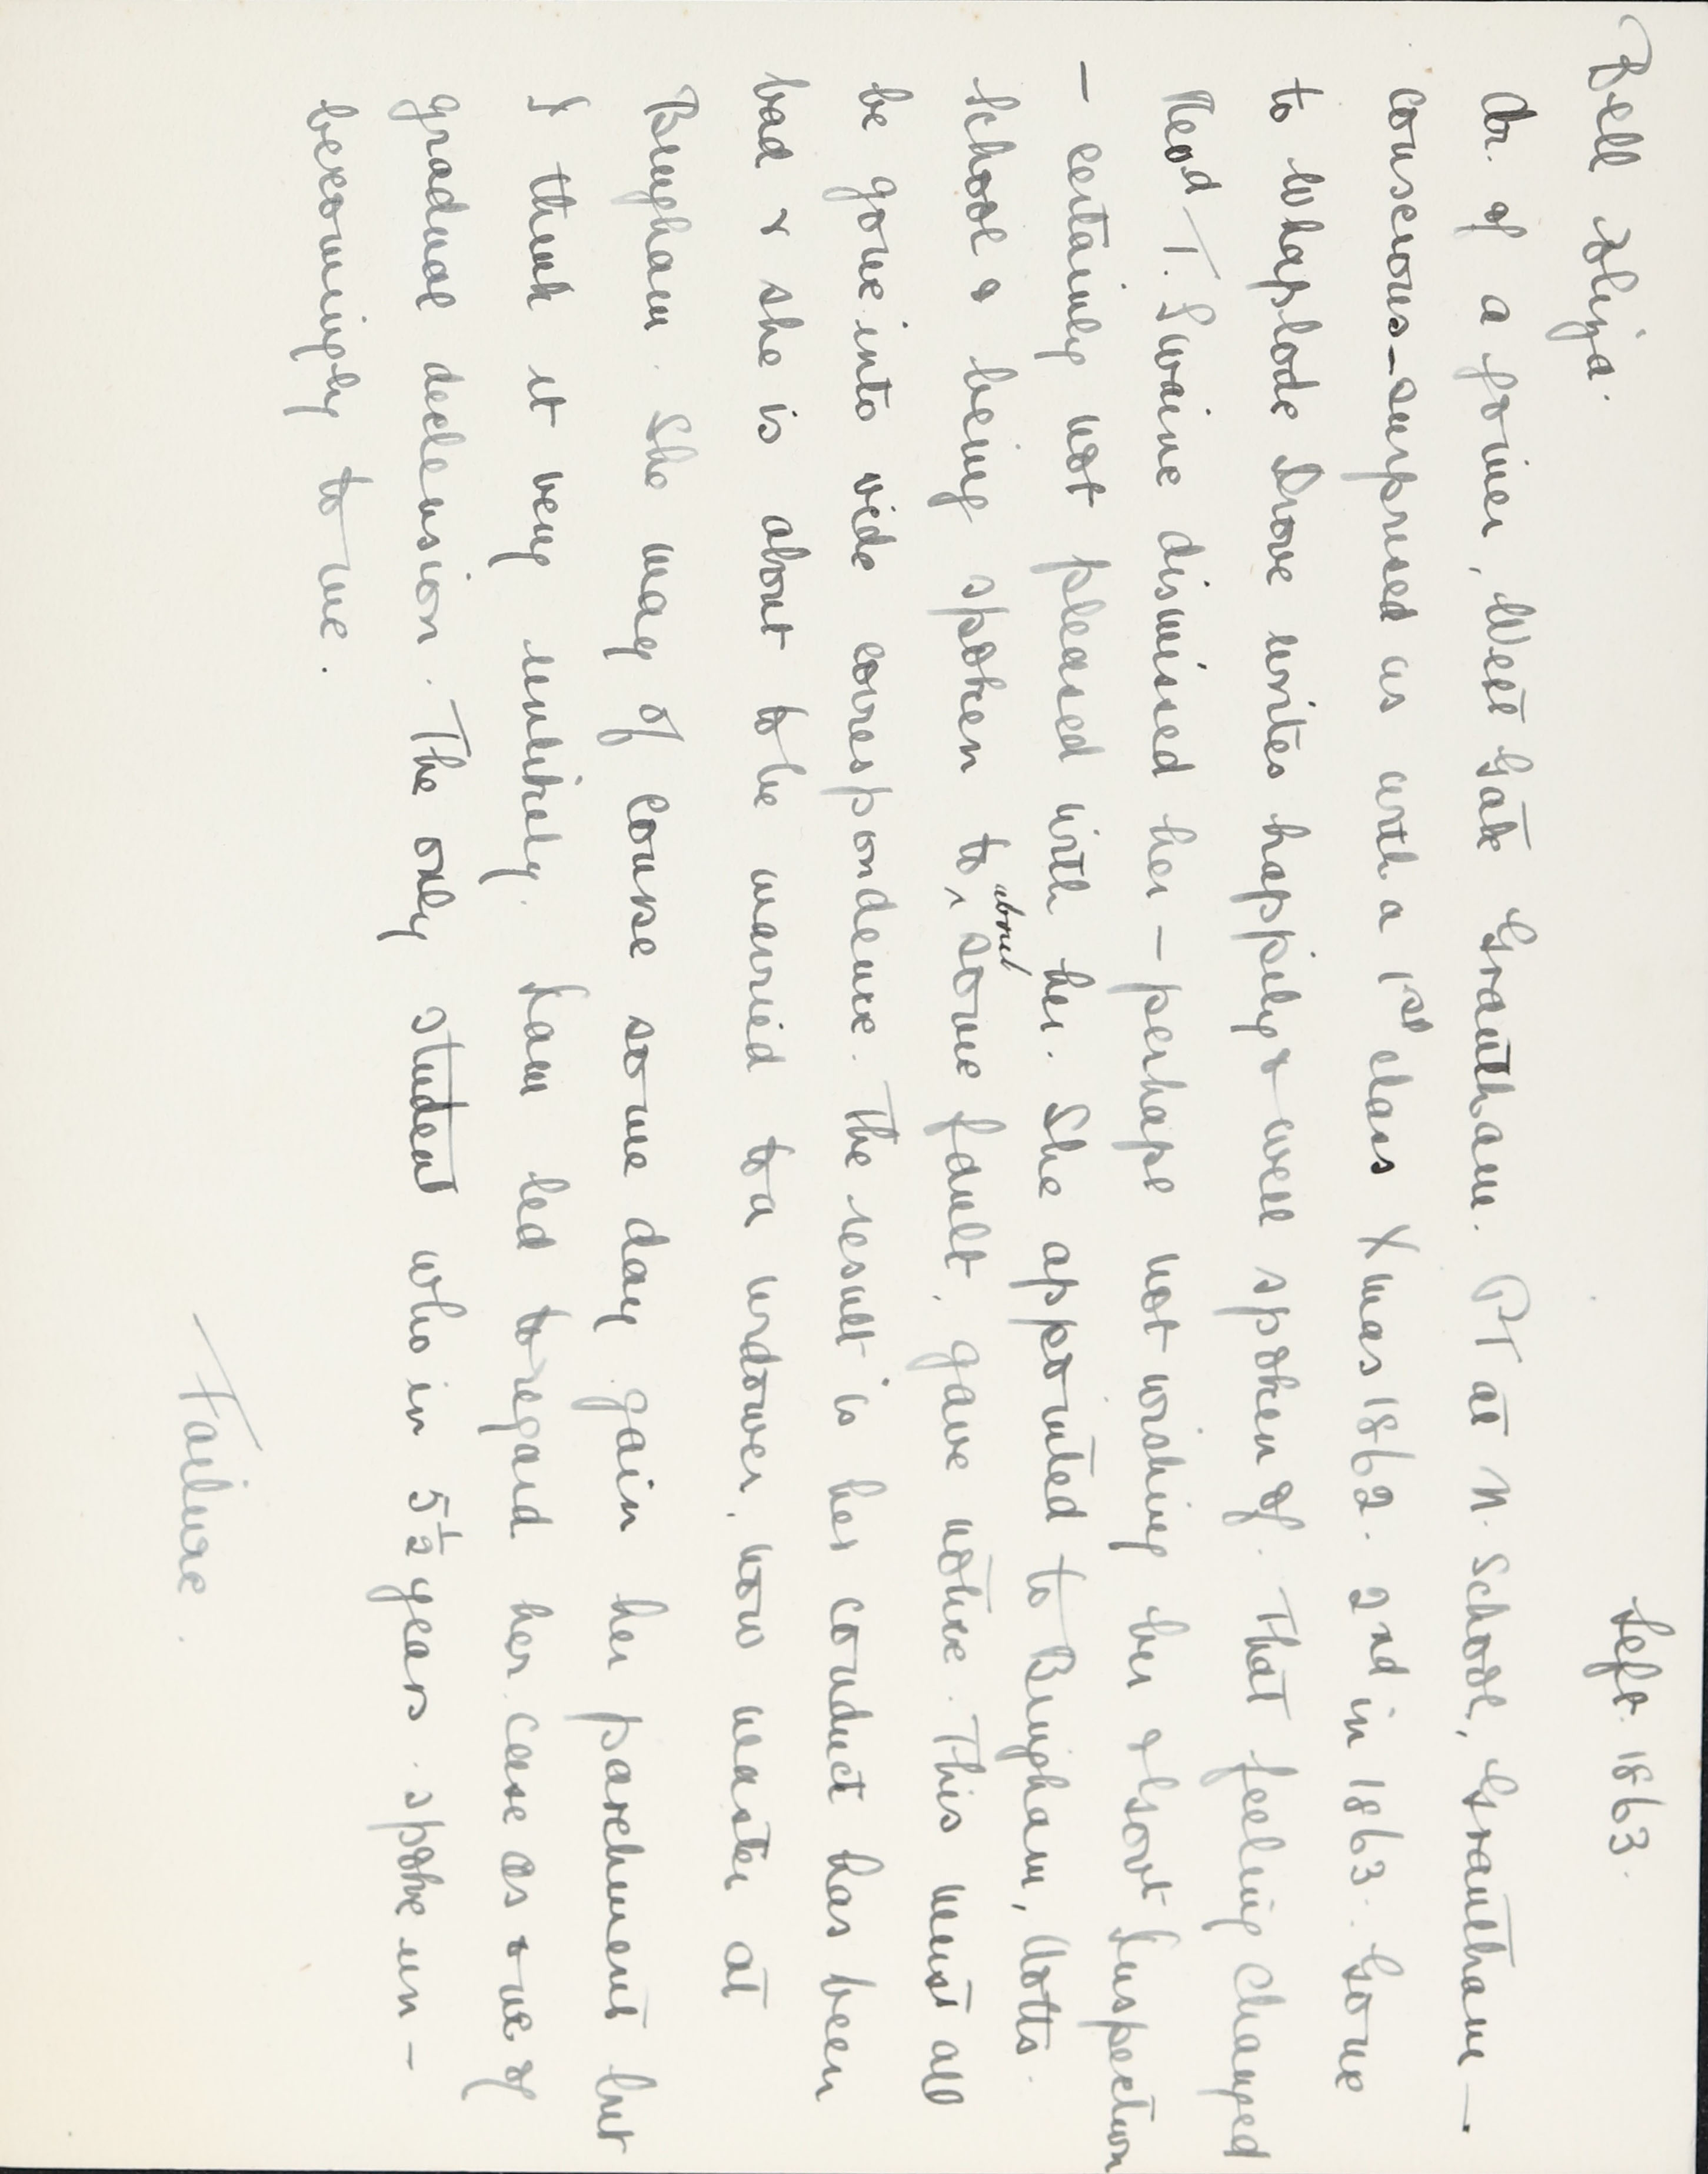 Bell Eliza. Left. 1863.
dr. of a joiner, West Gate Grantham. PT at N. School, Grantham —
conscious – surprised us with a 1st class Xmas 1862. 2nd in 1863. Gone
to Whaplode Drove writes happily & well spoken of. That feeling changed
Revd T. Swaine dismissed her – perhaps not wishing her & Govt Inspection
– certainly not pleased with her. She appointed to Bingham, Notts.
School & being spoken to about some fault, gave notice. This must all
be gone into vide correspondence. The result is her conduct has been
bad & she is about to be married to a widower, now master at
Bingham. She may of course some day gain her parchment but
I think it very unlikely. I am led to regard her case as one of
gradual declension. The only student who in 5½ years spoke un-
becomingly to me.
Failure.